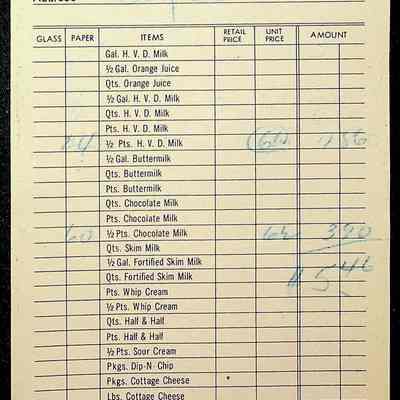 GLASS PAPER ITEMS RETAIL PRICE UNIT PRICE AMOUNT
Gal. H. V. D. Milk
½ Gal. Orange Juice
Qts. Orange Juice
½ Gal. H. V. D. Milk
Qts. H. V. D. Milk
Pts. H. V. D. Milk
24 ½ Pts. H. V. D. Milk 6½ 156
½ Gal. Buttermilk
Qts. Buttermilk
Pts. Buttermilk
Qts. Chocolate Milk
Pts. Chocolate Milk
60 ½ Pts. Chocolate Milk 6½ 390
Qts. Skim Milk
½ Gal. Fortified Skim Milk
Qts. Fortified Skim Milk $5.46
Pts. Whip Cream
½ Pts. Whip Cream
Qts. Half & Half
Pts. Half & Half
½ Pts. Sour Cream
Pkgs. Dip-N-Chip
Pkgs. Cottage Cheese
Lbs. Cottage Cheese